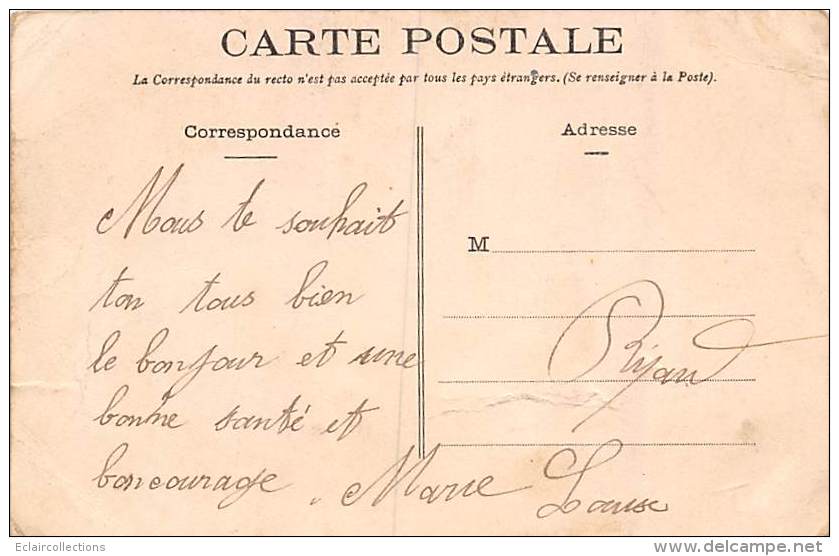 CARTE POSTALE
La Correspondance du recto n'est pas acceptée par tous les pays étrangers. (Se renseigner à la Poste).
Correspondance
Nous te souhait
ton tous bien
le bonjour et une
bonne santé et
boncourage.
Adresse
M
Marie
Louise
Eclaircollections
delcampe.net